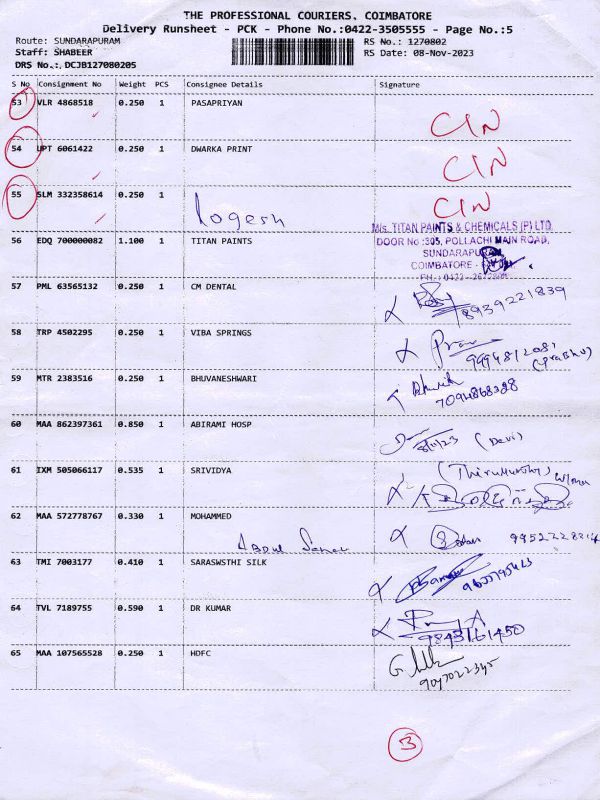 THE PROFESSIONAL COURIERS, COIMBATORE
Delivery Runsheet - PCK - Phone No.:0422-3505555 - Page No.:5
Route: SUNDARAPURAM RS No.: 1270802
Staff: SHABEER RS Date: 08-Nov-2023
DRS No.: DCJB127080205
S No Consignment No Weight PCS Consignee Details Signature
53 VLR 4868518 0.250 1 PASAPRIYAN CIN
54 UPT 6061422 0.250 1 DWARKA PRINT CIN
55 SLM 332358614 0.250 1 logesh CIN
M/s. TITAN PAINTS & CHEMICALS (P) LTD.
56 EDQ 700000082 1.100 1 TITAN PAINTS DOOR No :305, POLLACHI MAIN ROAD,
SUNDARAPURAM
COIMBATORE -
PH : 0422
57 PML 63565132 0.250 1 CM DENTAL 8939221839
58 TRP 4502295 0.250 1 VIBA SPRINGS
9994812081
(prabhu)
59 MTR 2383516 0.250 1 BHUVANESHWARI
7094868328
60 MAA 862397361 0.850 1 ABIRAMI HOSP (Devi)
61 IXM 505066117 0.535 1 SRIVIDYA
62 MAA 572778767 0.330 1 MOHAMMED
63 TMI 7003177 0.410 1 SARASWSTHI SILK
64 TVL 7189755 0.590 1 DR KUMAR
9843161450
65 MAA 107565528 0.250 1 HDFC
9047022345
3